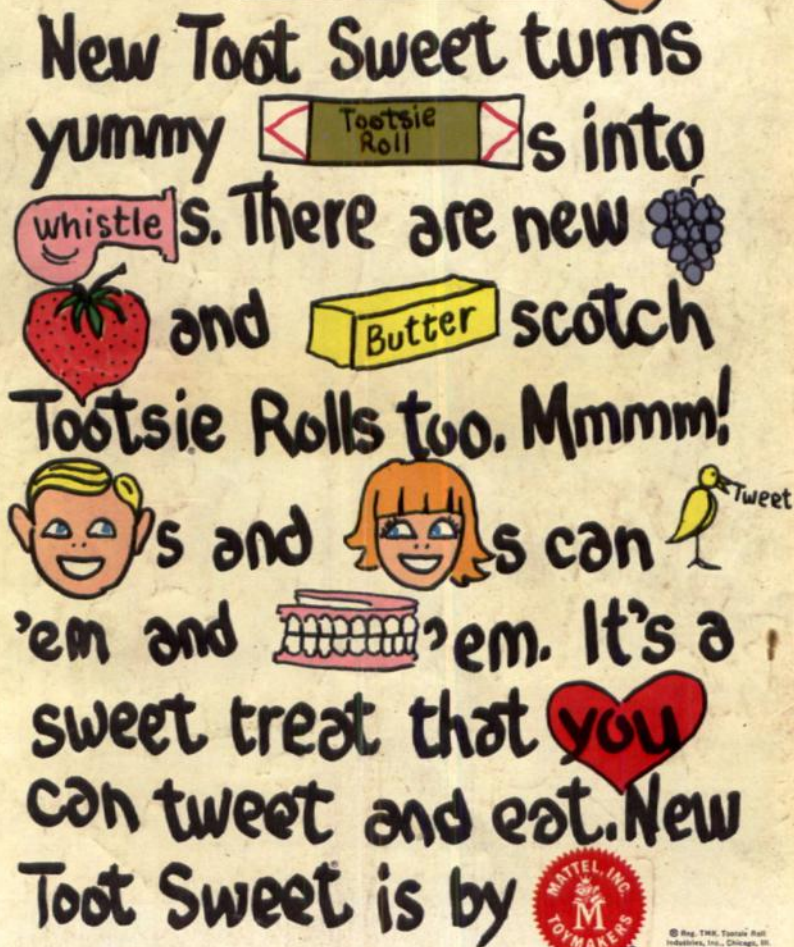 New Toot Sweet turns
yummy Tootsie Roll s into
whistle s. There are new
and Butter scotch
Tootsie Rolls too. Mmmm!
s and s can Tweet
'em and 'em. It's a
sweet treat that you
can tweet and eat. New
Toot Sweet® is by MATTEL, INC. TOYMAKERS M
® Reg. TMK. Tootsie Roll
Industries, Inc., Chicago, Ill.